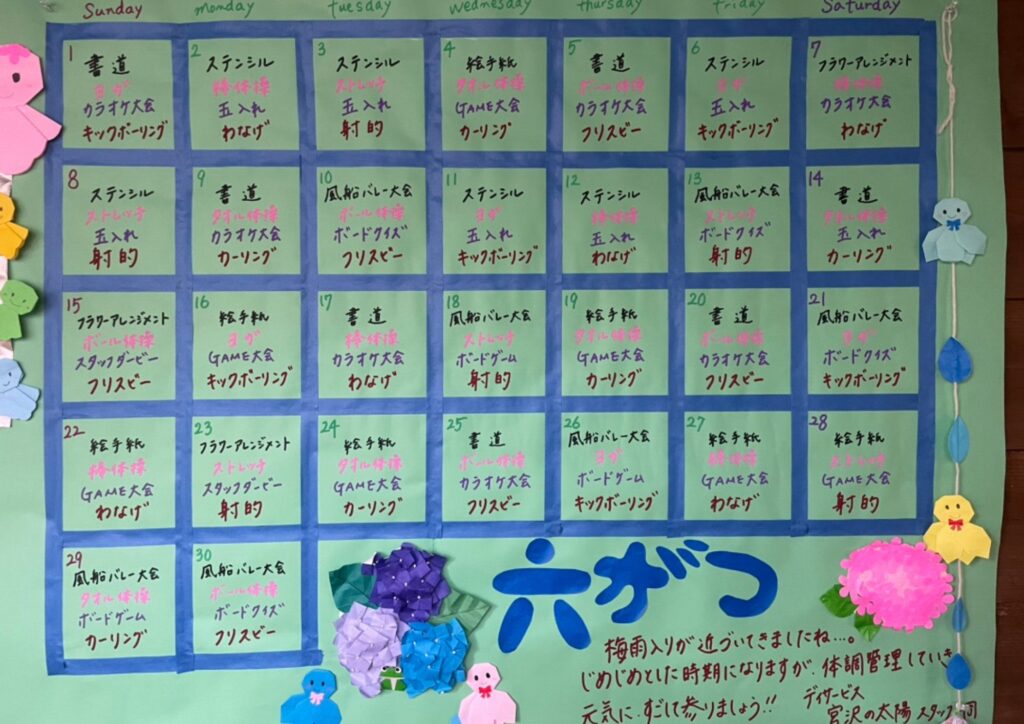 Sunday Monday Tuesday Wednesday Thursday Friday Saturday
1
書道
ヨガ
カラオケ大会
キックボーリング
2
ステンシル
棒体操
玉入れ
わなげ
3
ステンシル
ストレッチ
玉入れ
射的
4
絵手紙
タオル体操
GAME大会
カーリング
5
書道
ボール体操
カラオケ大会
フリスビー
6
ステンシル
ヨガ
玉入れ
キックボーリング
7
フラワーアレンジメント
棒体操
カラオケ大会
わなげ
8
ステンシル
ストレッチ
玉入れ
射的
9
書道
タオル体操
カラオケ大会
カーリング
10
風船バレー大会
ボール体操
ボードクイズ
フリスビー
11
ステンシル
ヨガ
玉入れ
キックボーリング
12
ステンシル
棒体操
玉入れ
わなげ
13
風船バレー大会
ストレッチ
ボードクイズ
射的
14
書道
タオル体操
玉入れ
カーリング
15
フラワーアレンジメント
ボール体操
スタックダービー
フリスビー
16
絵手紙
ヨガ
GAME大会
キックボーリング
17
書道
棒体操
カラオケ大会
わなげ
18
風船バレー大会
ストレッチ
ボードゲーム
射的
19
絵手紙
タオル体操
GAME大会
カーリング
20
書道
ボール体操
カラオケ大会
フリスビー
21
風船バレー大会
ヨガ
ボードクイズ
キックボーリング
22
絵手紙
棒体操
GAME大会
わなげ
23
フラワーアレンジメント
ストレッチ
スタックダービー
射的
24
絵手紙
タオル体操
GAME大会
カーリング
25
書道
ボール体操
カラオケ大会
フリスビー
26
風船バレー大会
ヨガ
ボードゲーム
キックボーリング
27
絵手紙
棒体操
GAME大会
わなげ
28
絵手紙
ストレッチ
GAME大会
射的
29
風船バレー大会
タオル体操
ボードゲーム
カーリング
30
風船バレー大会
ボール体操
ボードクイズ
フリスビー
六がつ
梅雨入りが近づいてきましたね…。
じめじめとした時期になりますが、体調管理していき
元気にすごして参りましょう!!
デイサービス
宮沢の太陽 スタッフ一同